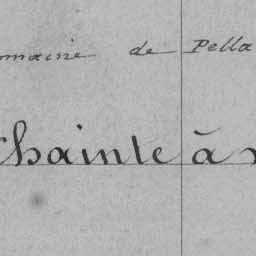 omaine de Pella
Chainte à